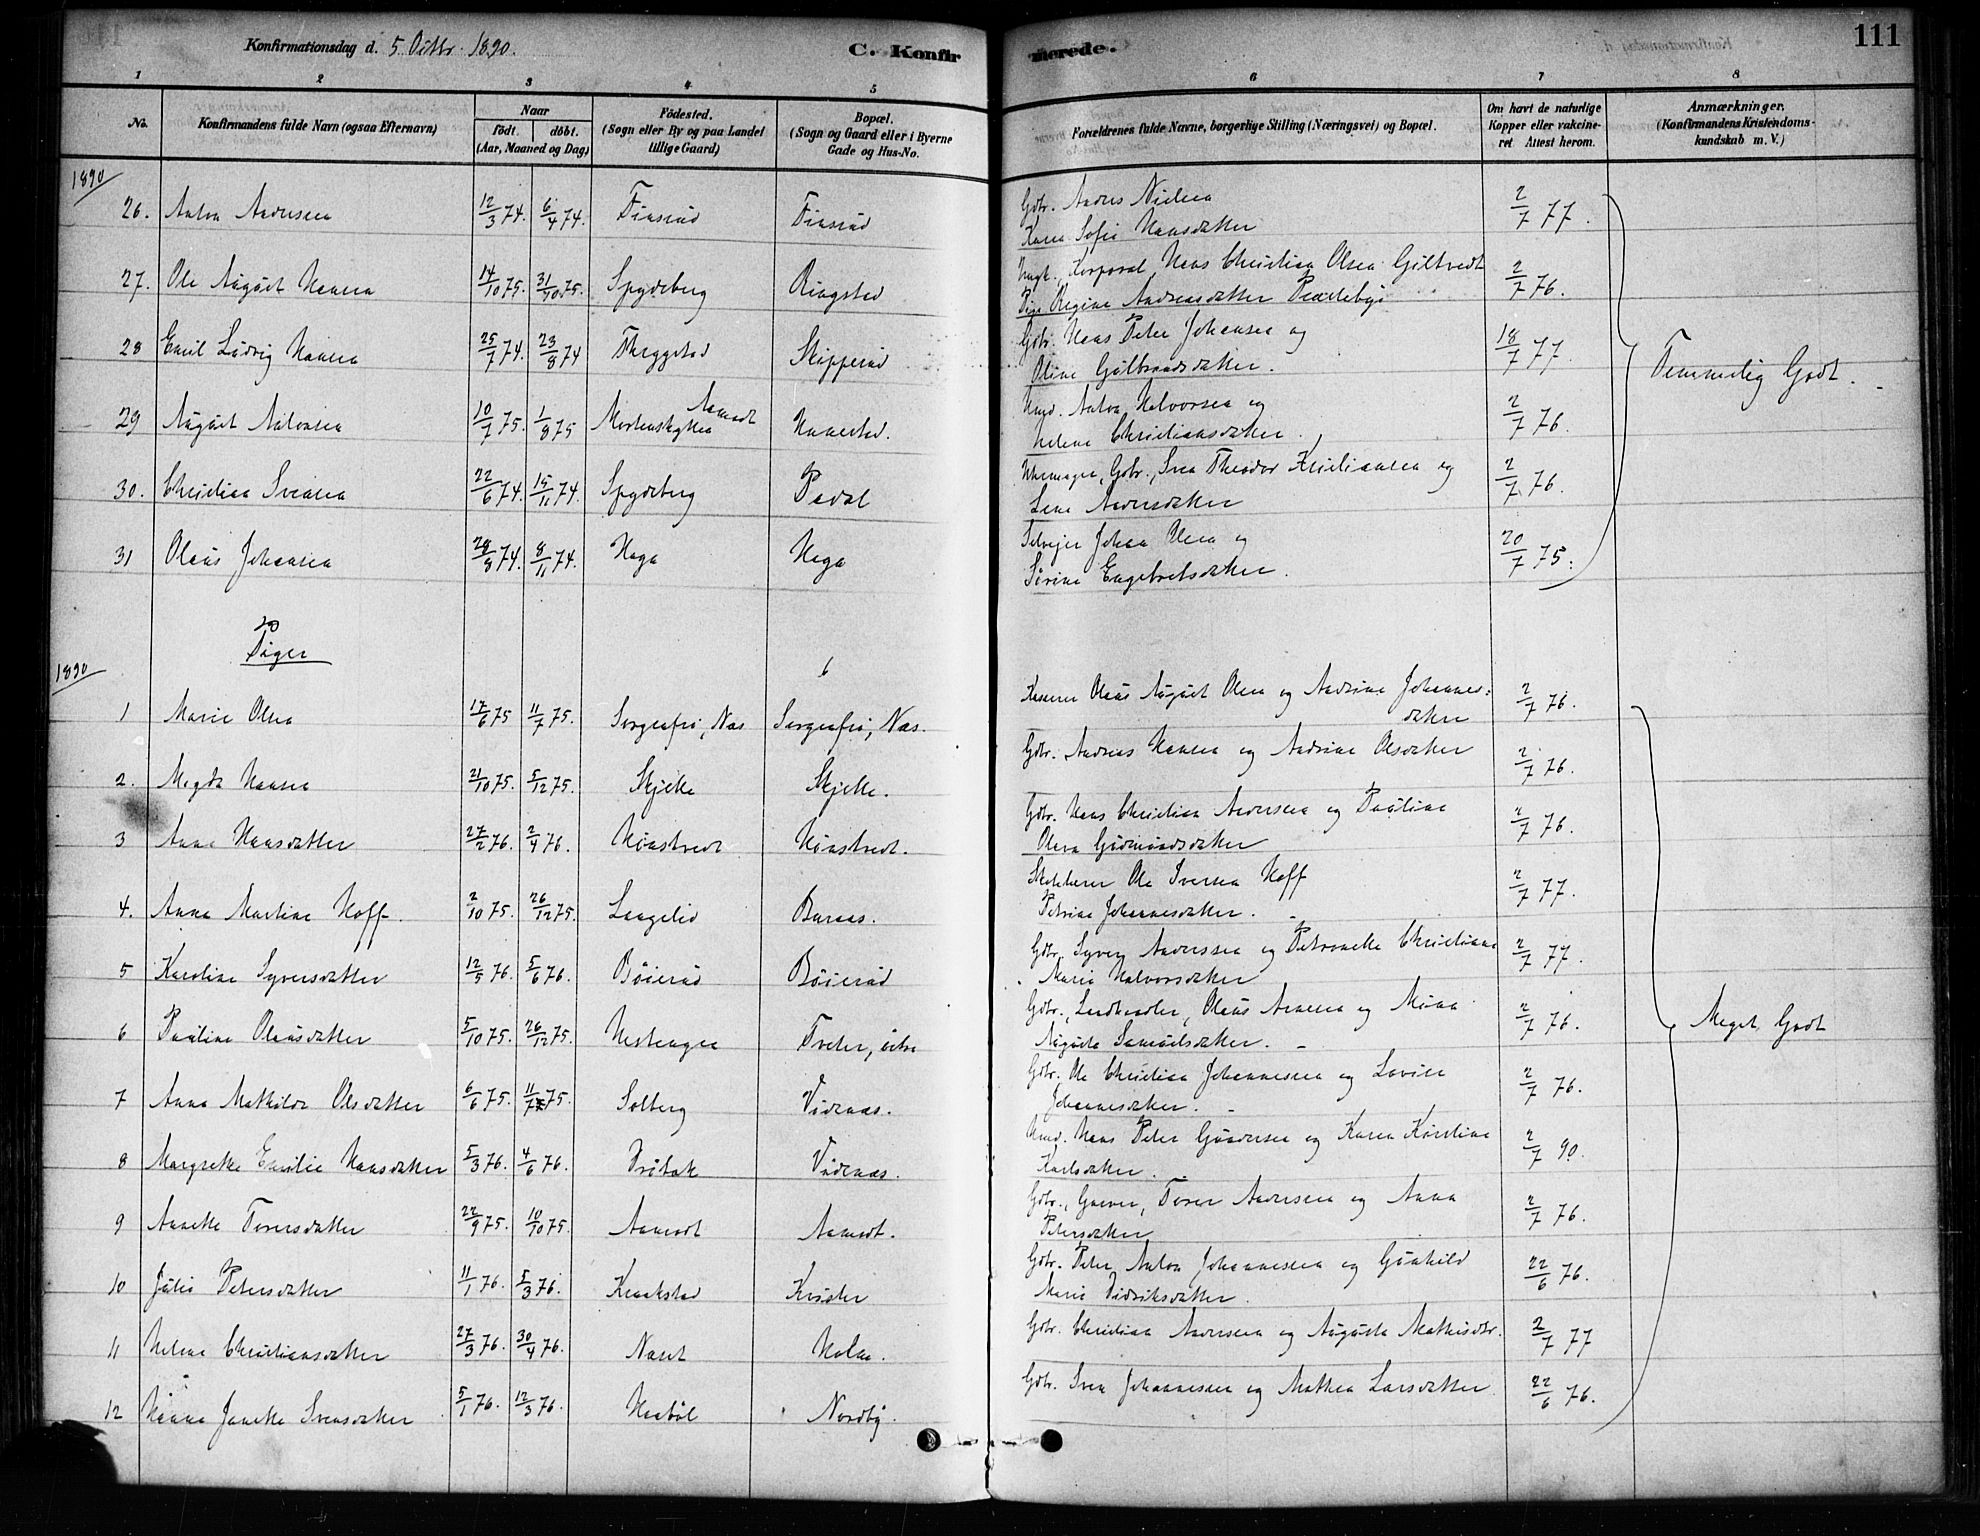 Konfirmationsdag d. 5 Octbr. 1890.
C. Konfirmerede.
111
1 2 3 4 5 6 7 8
No.
Konfirmandens fulde Navn (ogsaa Efternavn)
Naar
født. døbt.
(Aar, Maaned og Dag)
Födested.
(Sogn eller By og paa Landet
tillige Gaard)
Bopæl.
(Sogn og Gaard eller i Byerne
Gade og Hus-No.
Forældrenes fulde Navne, borgerlige Stilling (Næringsvei) og Bopæl.
Om havt de naturlige
Kopper eller vakcine-
ret Attest herom.
Anmærkninger.
(Konfirmandens Kristendoms-
kundskab m. V.)
1890
26. Anton Andersen 12/3 74. 6/4 74. Finsrud Finsrud Gbr. Anders Nielsen 2/7 77.
Karen Sofie Hansdatter
27. Ole August Hansen 14/10 75. 31/10 75. Spydeberg Ringstad Ungk. Korporal Hans Christian Olsen Giltvedt 2/7 76.
Pige Regine Andreasdatter
28 Emil Ludvig Hansen 25/7 74. 23/8 74 Thregstad Skipperud Gbr. Hans Peter Johansen og 18/7 77.
Oline Gulbrandsdatter.
Temmelig Godt.
29 August Antonsen 10/7 75. 1/8 75 Aamodt Hanestad. Hmd. Anton Halvorsen og 2/7 76.
Helene Christiansdatter.
30. Christian Svensen 22/6 74. 15/11 74 Spydeberg Gbr., Sven Theodor Kristiansen og 2/7 76.
Lene Andersdatter
31 Olaus Johansen 28/8 74. 8/11 74. Haga Haga Selvejer Johan Olsen og 20/7 75.
Sørine Engebretsdatter.
Piger
1890
1 Marie Olsen 17/6 75 11/7 75. Sorgenfri, Næs Sorgenfri, Næs. Kaserer Olaus August Olsen og Andrine Johannes- 2/7 76.
datter
2. Magda Hansen 21/10 75. 5/12 75. Skjelle Skjelle. Gbr. Andreas Hansen og Andrine Olsdatter 2/7 76.
3 Anna Hansdatter 27/2 76. 2/4 76. Mønstvedt Mønstvedt. Gbr. Hans Christian Andersen og Pauline 2/7 76.
Olava Gudmundsdatter
4. Anna Martine Hoff. 2/10 75. 26/12 75. Langelid Ole Iversen Hoff 2/7 77.
Petrine Johannesdatter.
5 Karoline Syversdatter 12/5 76. 5/6 76. Bøierud Bøierud Gbr. Syver Anderssen og Petronelle Christiane 2/7 77.
Marie Halvorsdatter
6 Pauline Olausdatter 5/10 75. 26/12 75. Hestengen Tveter, østre Gbr., Landhandler, Olaus Arnesen og Mina 2/7 76.
Augusta Samuelsdatter.
Meget Godt
7 Anna Mathilde Olsdatter 6/6 75. 11/7 75. Solberg Vidnæs. Gbr. Ole Christian Johannessen og Lovise 2/7 76.
Johannesdatter.
8 Margrethe Emilie Hansdatter 5/3 76. 4/6 76. Drøbak Vidnæs. Hmd. Hans Peter Gundersen og Karen Kirstine 2/7 90.
Karlsdatter.
9 Annette Torersdatter 22/9 75. 10/10 75. Aamodt Aamodt. Gbr., Torer Andersen og Anna 2/7 76.
Petersdatter
10 Julie Petersdatter 11/1 76. 5/3 76. Kraakstad Kvister Gbr. Peter Anton Johannessen og Gunhild 22/6 76.
Marie Didriksdatter.
11 Helene Christiansdatter 27/3 76. 30/4 76. Naret Holm. Gbr. Christian Andersen og Augusta Mathisdtr. 2/7 77
12 Hanna Janette Svensdatter 5/1 76. 12/3 76. Haabøl Nordby. Gbr. Sven Johannessen og Mathea Larsdatter 22/6 76.